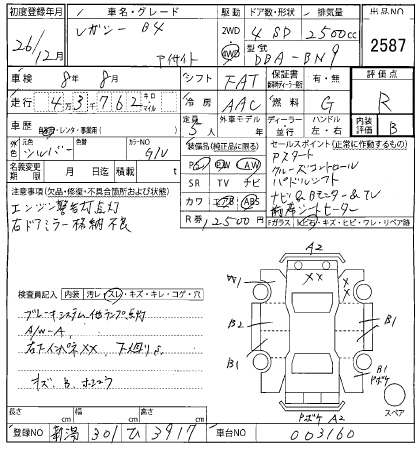 初度登録年月 車名・グレード 駆動 ドア数・形状 排気量 出品NO
26年12月 レガシー B4 アイサイト 2WD 4WD 4 SD 2500cc
型式 DBA-BN9 2587
車検 8年 8月 シフト FAT 保証書 有・無 評価点
走行 4万3千762 キロ マイル 冷房 AAC 燃料 G R
車歴 自家用・レンタ・事業用( ) 定員 5人 外車モデル 年 ディーラー 並行 ハンドル 左・右 内装評価 B
外色 元色 シルバー 色 カラーNO G1U
名義変更期限 月 日迄 積 t
装備品(純正品に限る) PS PW AW
SR TV ナビ
カワ エアB ABS
R券 12500円
セールスポイント(正常に作動するもの)
Pスタート
クルーズコントロール
パドルシフト
ナビ&Bモニター&TV
前席シートヒーター
Fガラス
注意事項(欠品・修復・不具合箇所および状態)
エンジン警告灯点灯
右ドアミラー格納不良
検査員記入 内装 汚レ・スレ・キズ・キレ・コゲ・穴
ブレーキシステム他ランプ点灯
A/W-A
右下インパネXX 下廻りS
キズ、B、ホシュウ
A2
XX
XX
W1
B2
B1
B1
B1
B1
Pボケ
Pボケ A2
スペア
長さ cm 幅 cm 高さ cm
登録NO 新潟 301 ひ 3917 車台NO 003160